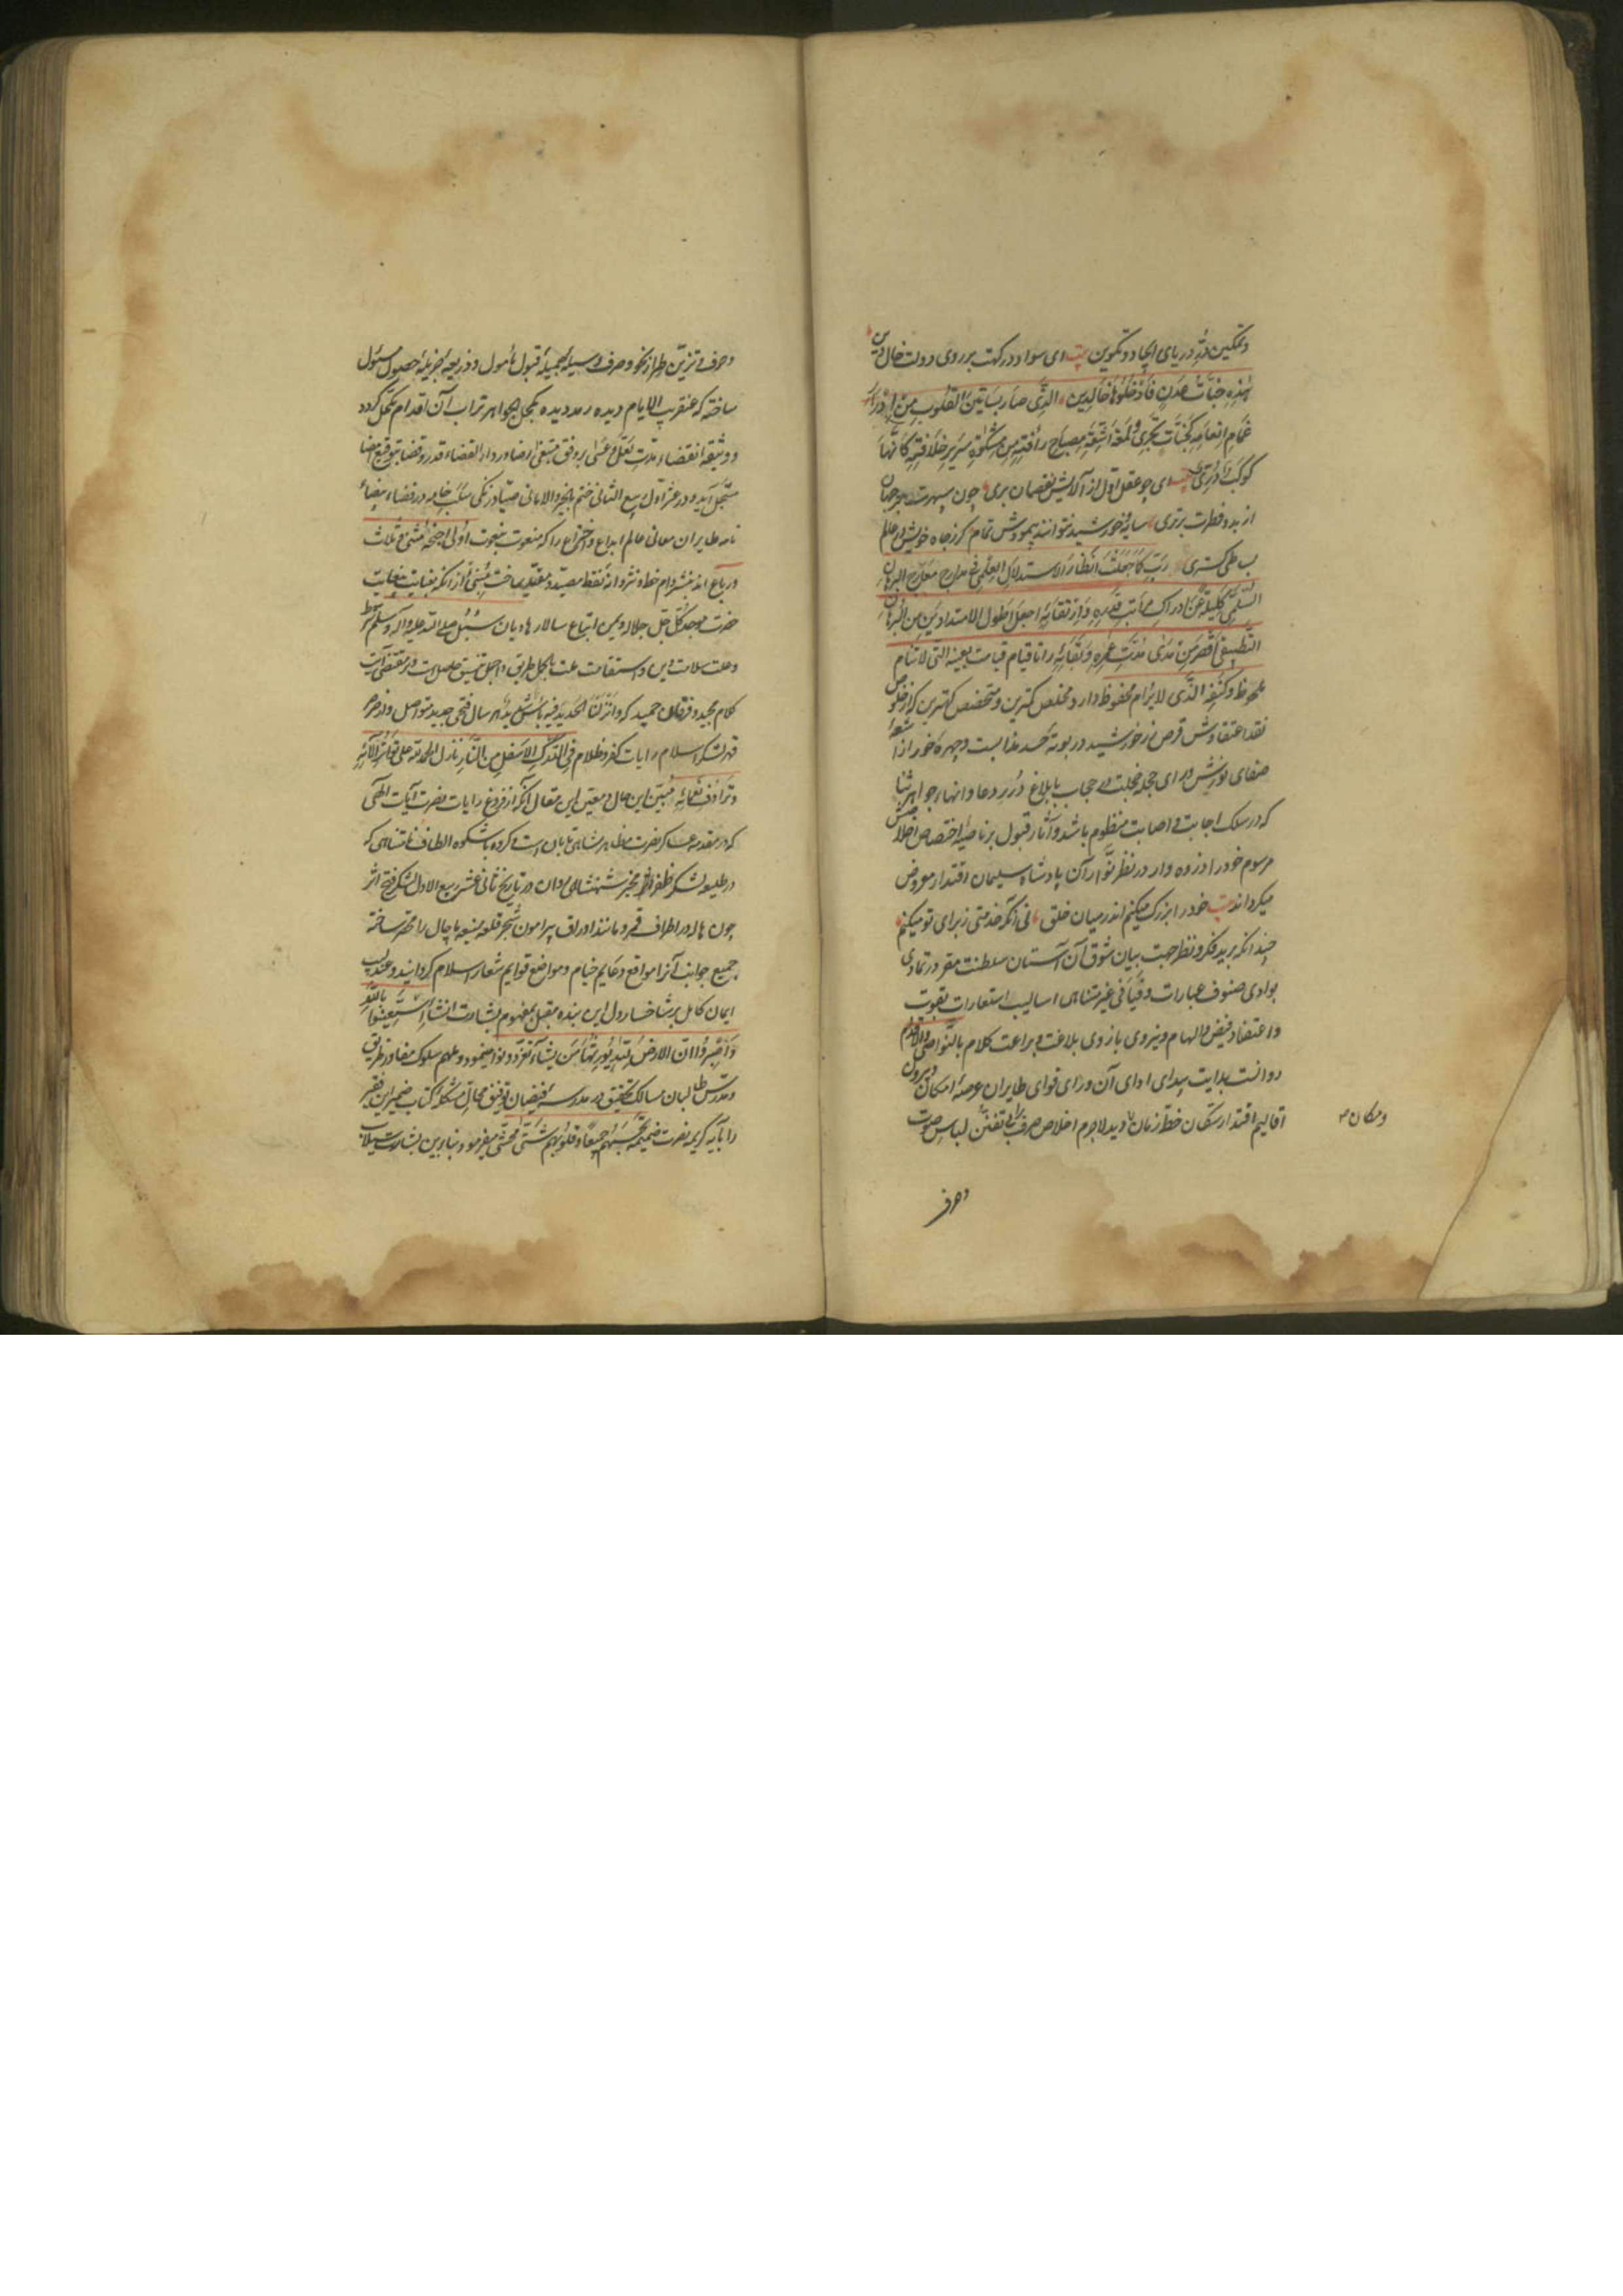 وتمکین دُرِّ دریای ایجاد و تکوین بیت ای سواد درگهت بر روی دولت خال
هٰذِهِ جَنّاتُ عَدْنٍ فَادْخُلُوهَا خَالِدِین الَّذی صَارَ بَسَاتینُ القُلُوبِ مِن
غَمَامِ اِنعَامِهِ کَجَنّاتٍ تَجْرِی وَلَمْعَةُ اَشِعَّةِ مِصبَاحِ رَأفَتِهِ مِن مِشکٰوةِ سَرِیرِ خِلَافَتِهِ کَاَنَّهَا
کَوکَبٌ دُرِّیٌ بیت ای چو عقل اول از آلایش نقصان بری چون سپهرت بر جهان
از بدو فطرت برتری سایه خورشید نتواند پیمودش تمام گر ز جاه خویش در عالم
بساطی گستری رَبِّ کَمَا جَعَلْتَ اَنظَارَ الاستدلالِ العِلمی فی مدارج معارج البرهان
السُلَّمِی کَلِیلَةً عَن ادراکِ مراتبِ قَدرِهِ وَارتقائِهِ اجعَل اَطولَ الامتدادَین مِن البُرهان
التَطبیقی اَقصَرَ مِن مَدٰی مُدّتِ عُمرِهِ وَبَقَائِهِ و تا قیام قیامت بعینه التی لا تنام
ملحوظ و کنفِهِ الذی لا یُرام محفوظ دارد مخلص کمترین و متخصص کهترین که از خلوص
نقد اعتقادش قرص زر خورشید در بوته حسد گذاست و چهره خور از اشعهٔ
صفای نورش ورای حجله خجلت در حجاب بابلاغ دُرَرِ دعا و انهار جواهر ثنا
که در سلک اجابت و اصابت منظوم باشد و آثار قبول بر ناصیهٔ اختصاص اخلاصش
مرسوم خود را ذره وار در نظر نوّار آن پادشاه سلیمان اقتدار معروض
میگرداند بیت خود را بزرگ میکنم اندر میان خلق نی آنکه خدمتی ز برای تو میکنم
چندانکه برید فکر و نظر جهت بیان شوق آن آستان سلطنت مقر در تمادی
بوادی صنوف عبارات و فیافی غیر متناهی اسالیب استعارات بقوت
و اعتضاد فیض الهام و نیروی بازوی بلاغت و براعت کلام بالنّواصی والاقدام
دوانست بدایت بیدای ادای آن ورای قوای طایران عرصهٔ امکان و بیرون
اقالیم اقتدار سکان خطّ زمان دید لاجرم اخلاص صرف را بی تفنّن لباس صوت
ومکان
وحرف
وحرف و تزیّن طراز نحو و صرف وسیلهٔ جمیلهٔ قبول مأمول و ذریعهٔ جزیلهٔ حصول مسئول
ساخته که عنقریب الایام دیده رمد دیده بکحل الجواهر تراب آن اقدام مکحّل گردد
و وثیقهٔ انقضاء مدت لَعَلَّ و عَسٰی بر وفق مبتغی از صادر دار القضاء قدر و قضا بتوقیع امضا
مسجّل آید و در عشر اول ربیع الثانی ختم بالخیر والامانی صیّاد زنگی سَلَب خامه در فضاء بیضاء
نامه طایران معانی عالم ابداع و اختراع را که منعوت بنعوت اُولی اجنحة مثنی و ثُلاث
و رباع اند بنشر دام خط و نثر دانهٔ نقط مصیّد و مقیّد ساخت مُنبی از آنکه بعنایت بیغایت
حضرت موجد کُل جَلّ جلاله و یمن اتباع سالار هادیان سُبُل صلی الله علیه و آله وسلم
وعلت سلامت این و استقامت عت باکمل طریق و اجمل تنسیق حاصلست و بر مقتضی آیت
کلام مجید و فرقان حمید که و انزلنا الحدید فیه بأس شدید هر سال فتحی جدید متواصل و از ضرب
قهر لشکر اسلام رایات کفر و ظلام فی الدَّرکِ الاَسفَلِ مِنَ النَّارِ نازل الحمد لله علی تَوَاتُرِ آلائِهِ
وتَرادُفِ نَعمائِهِ مُبیّن این حال و معیّن این مقال آنکه از فروغ رایات نصرت آیات آلهی
که در مقدمه عساکر نصرت مظاهر شاهی تابان است و کروه باشکوه الطاف نامتناهی که
در طلیعه لشکر ظفر شهنشاهی روان در تاریخ ثانی عشر ربیع الاول لشکر فتح اثر
چون هاله در اطراف قمر و مانند اوراق پیرامون شجر قلعه منیعه ماچال را محصر ساخته
جمیع جوانب آنرا مواقع دعایم خیام و مواضع قوایم شعار اسلام گردانید و عندلیب
ایمان کامل بر شاخسار دل این بنده مقبل بمفهوم بشارت انشاء اِستَعِینُوا بِاللّهِ
وَاصْبِرُوا اِنَّ الارضَ لِلّٰهِ یُورِثُهَا مَن یَشَاءُ تغرّد و نوا مینمود و ملهم سلوک مفاوز طریق
و مدرّس طالبان مسالک تحقیق در مدرسه فیضان توفیق محال مشکلهٔ کتاب ضمیر این فقیر
را بآیه کریمه نصرت ضمیمهٔ تَحْسَبُهُم جَمِیعاً وَ قُلُوبُهُم شَتّٰی محشّی میفرمود و بنابرین بشارت